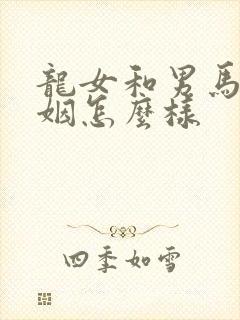 龍女和男馬
姻怎麼樣
四季如雪